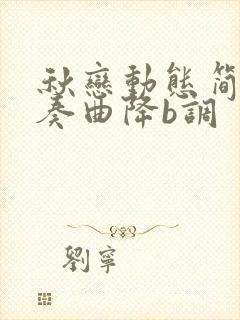 秋戀動態简
奏曲降b調
劉寧